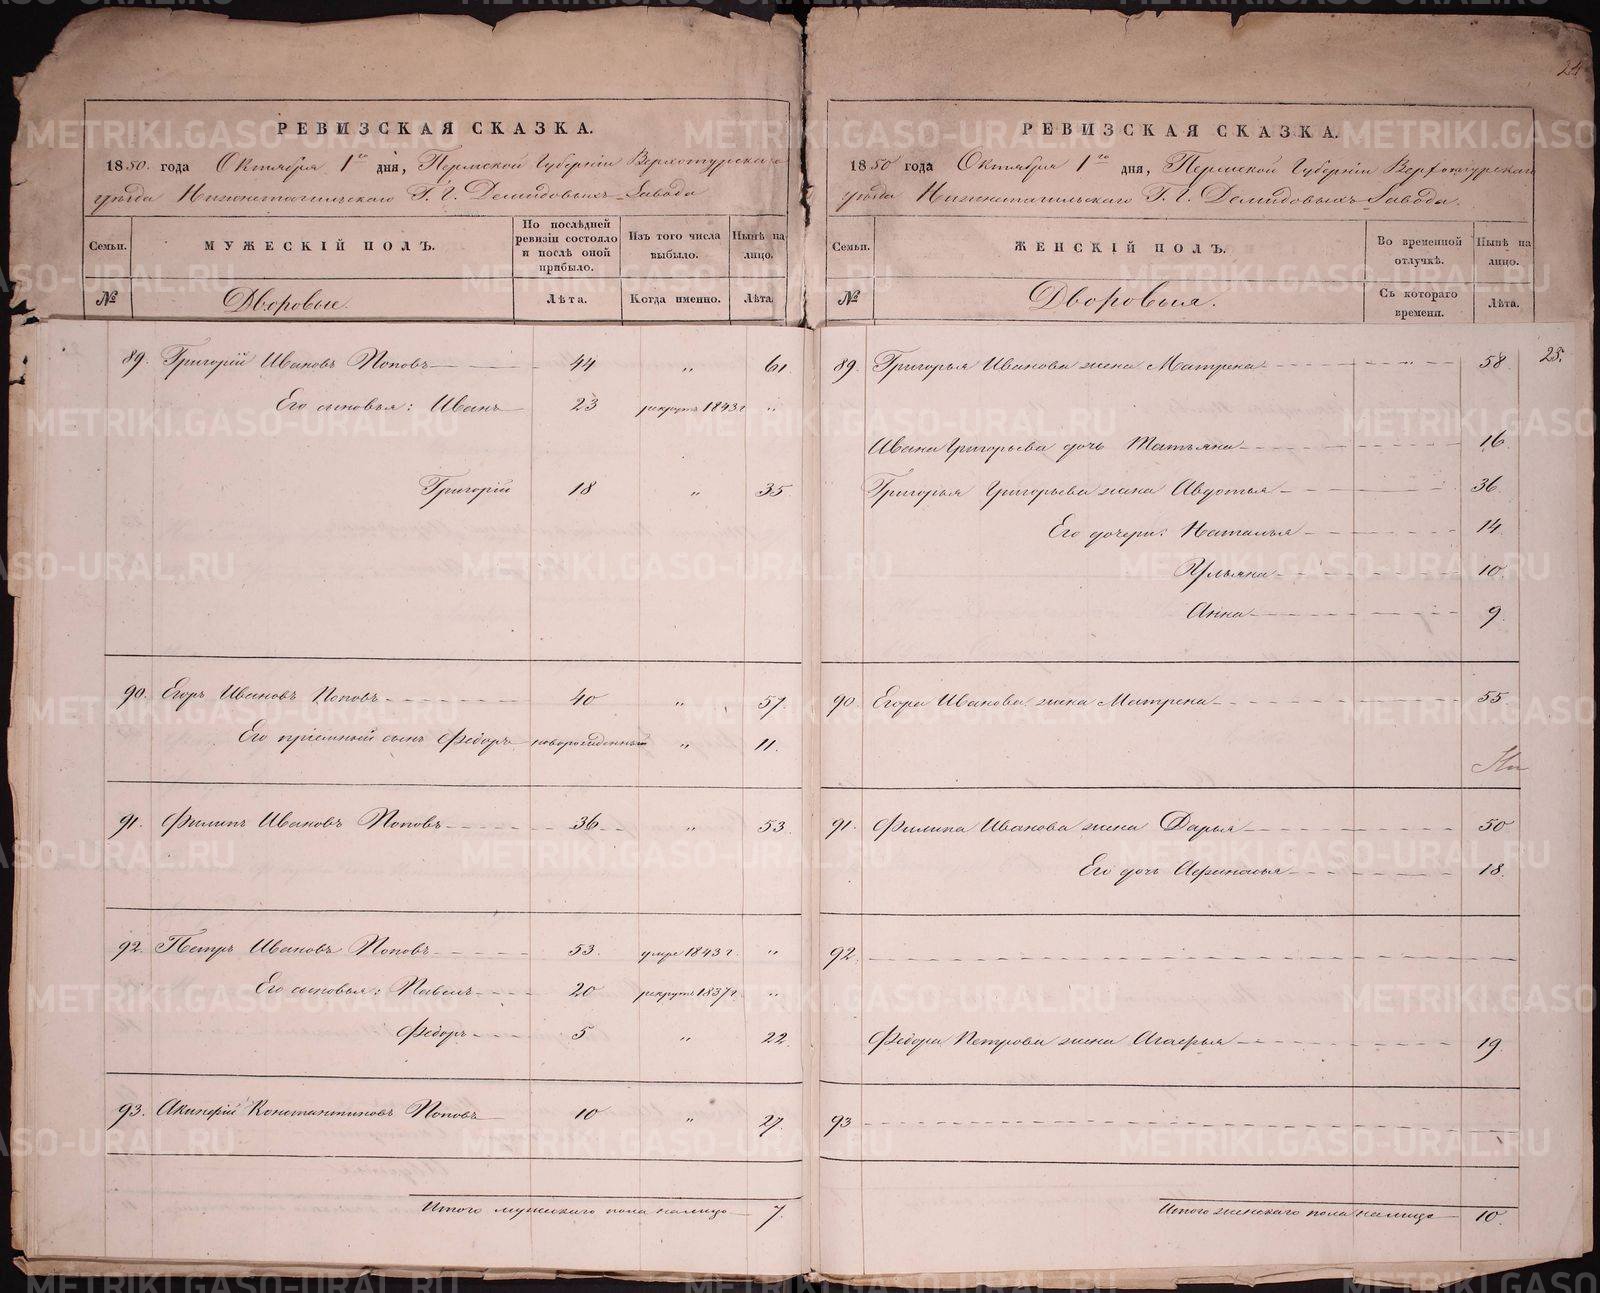 24
РЕВИЗСКАЯ СКАЗКА.
1850. года Октября 1го дня, Пермской Губерніи Верхотурскаго
уѣзда Нижнетагильскаго Г. Г. Демидовыхъ Завода
Семьи.
МУЖЕСКІЙ ПОЛЪ.
По послѣдней ревизіи состояло и послѣ оной прибыло.
Изъ того числа выбыло.
Нынѣ на лицо.
№
Дворовые.
Лѣта.
Когда именно.
Лѣта
89. Григорій Ивановъ Поповъ 44 „ 61.
Его сыновья: Иванъ 23 рекрутъ 1843 г „
Григорій 18 „ 35
90. Егоръ Ивановъ Поповъ 40 „ 57.
Его пріемный сынъ Ѳедоръ новорожденный „ 11.
91. Филипъ Ивановъ Поповъ 36 „ 53.
92. Петръ Ивановъ Поповъ 53. умре 1843 г. „
Его сыновья: Павелъ 20 рекрутъ 1837 г „
Ѳедоръ 5 „ 22.
93. Акинфій Константиновъ Поповъ 10 „ 27.
Итого мужескаго пола налицо 7.
РЕВИЗСКАЯ СКАЗКА.
1850 года Октября 1го дня, Пермской Губерніи Верхотурскаго
уѣзда Нижнетагильскаго Г. Г. Демидовыхъ Завода.
Семьи.
ЖЕНСКІЙ ПОЛЪ.
Во временной отлучкѣ.
Нынѣ на лицо.
№
Дворовыя.
Съ котораго времени.
Лѣта.
25.
89. Григорья Иванова жена Матрена „ 58.
Ивана Григорьева дочь Татьяна 16.
Григорья Григорьева жена Авдотья 36.
Его дочери: Наталья 14.
Ульяна 10.
Анна 9.
90. Егора Иванова жена Матрена 55.
91. Филипа Иванова жена Дарья 50
Его дочь Афанасья 18.
92.
Ѳедора Петрова жена Агафья 19.
93
Итого женскаго пола налицо 10.
METRIKI.GASO-URAL.RU